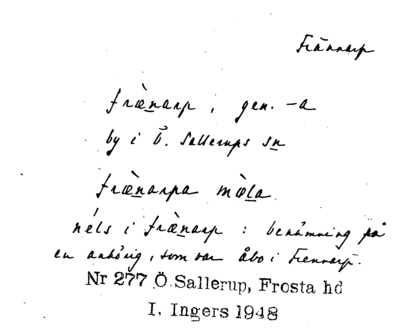 Frännarp
fræ̱narp, gen. -a
by i Ö. Sallerups sn
fræ̱narpa mæ̱la
néls i fræ̱narp : benämning på
en anhörig, som var åbo i Frennarp.
Nr 277 Ö.Sallerup, Frosta hd
I. Ingers 1948